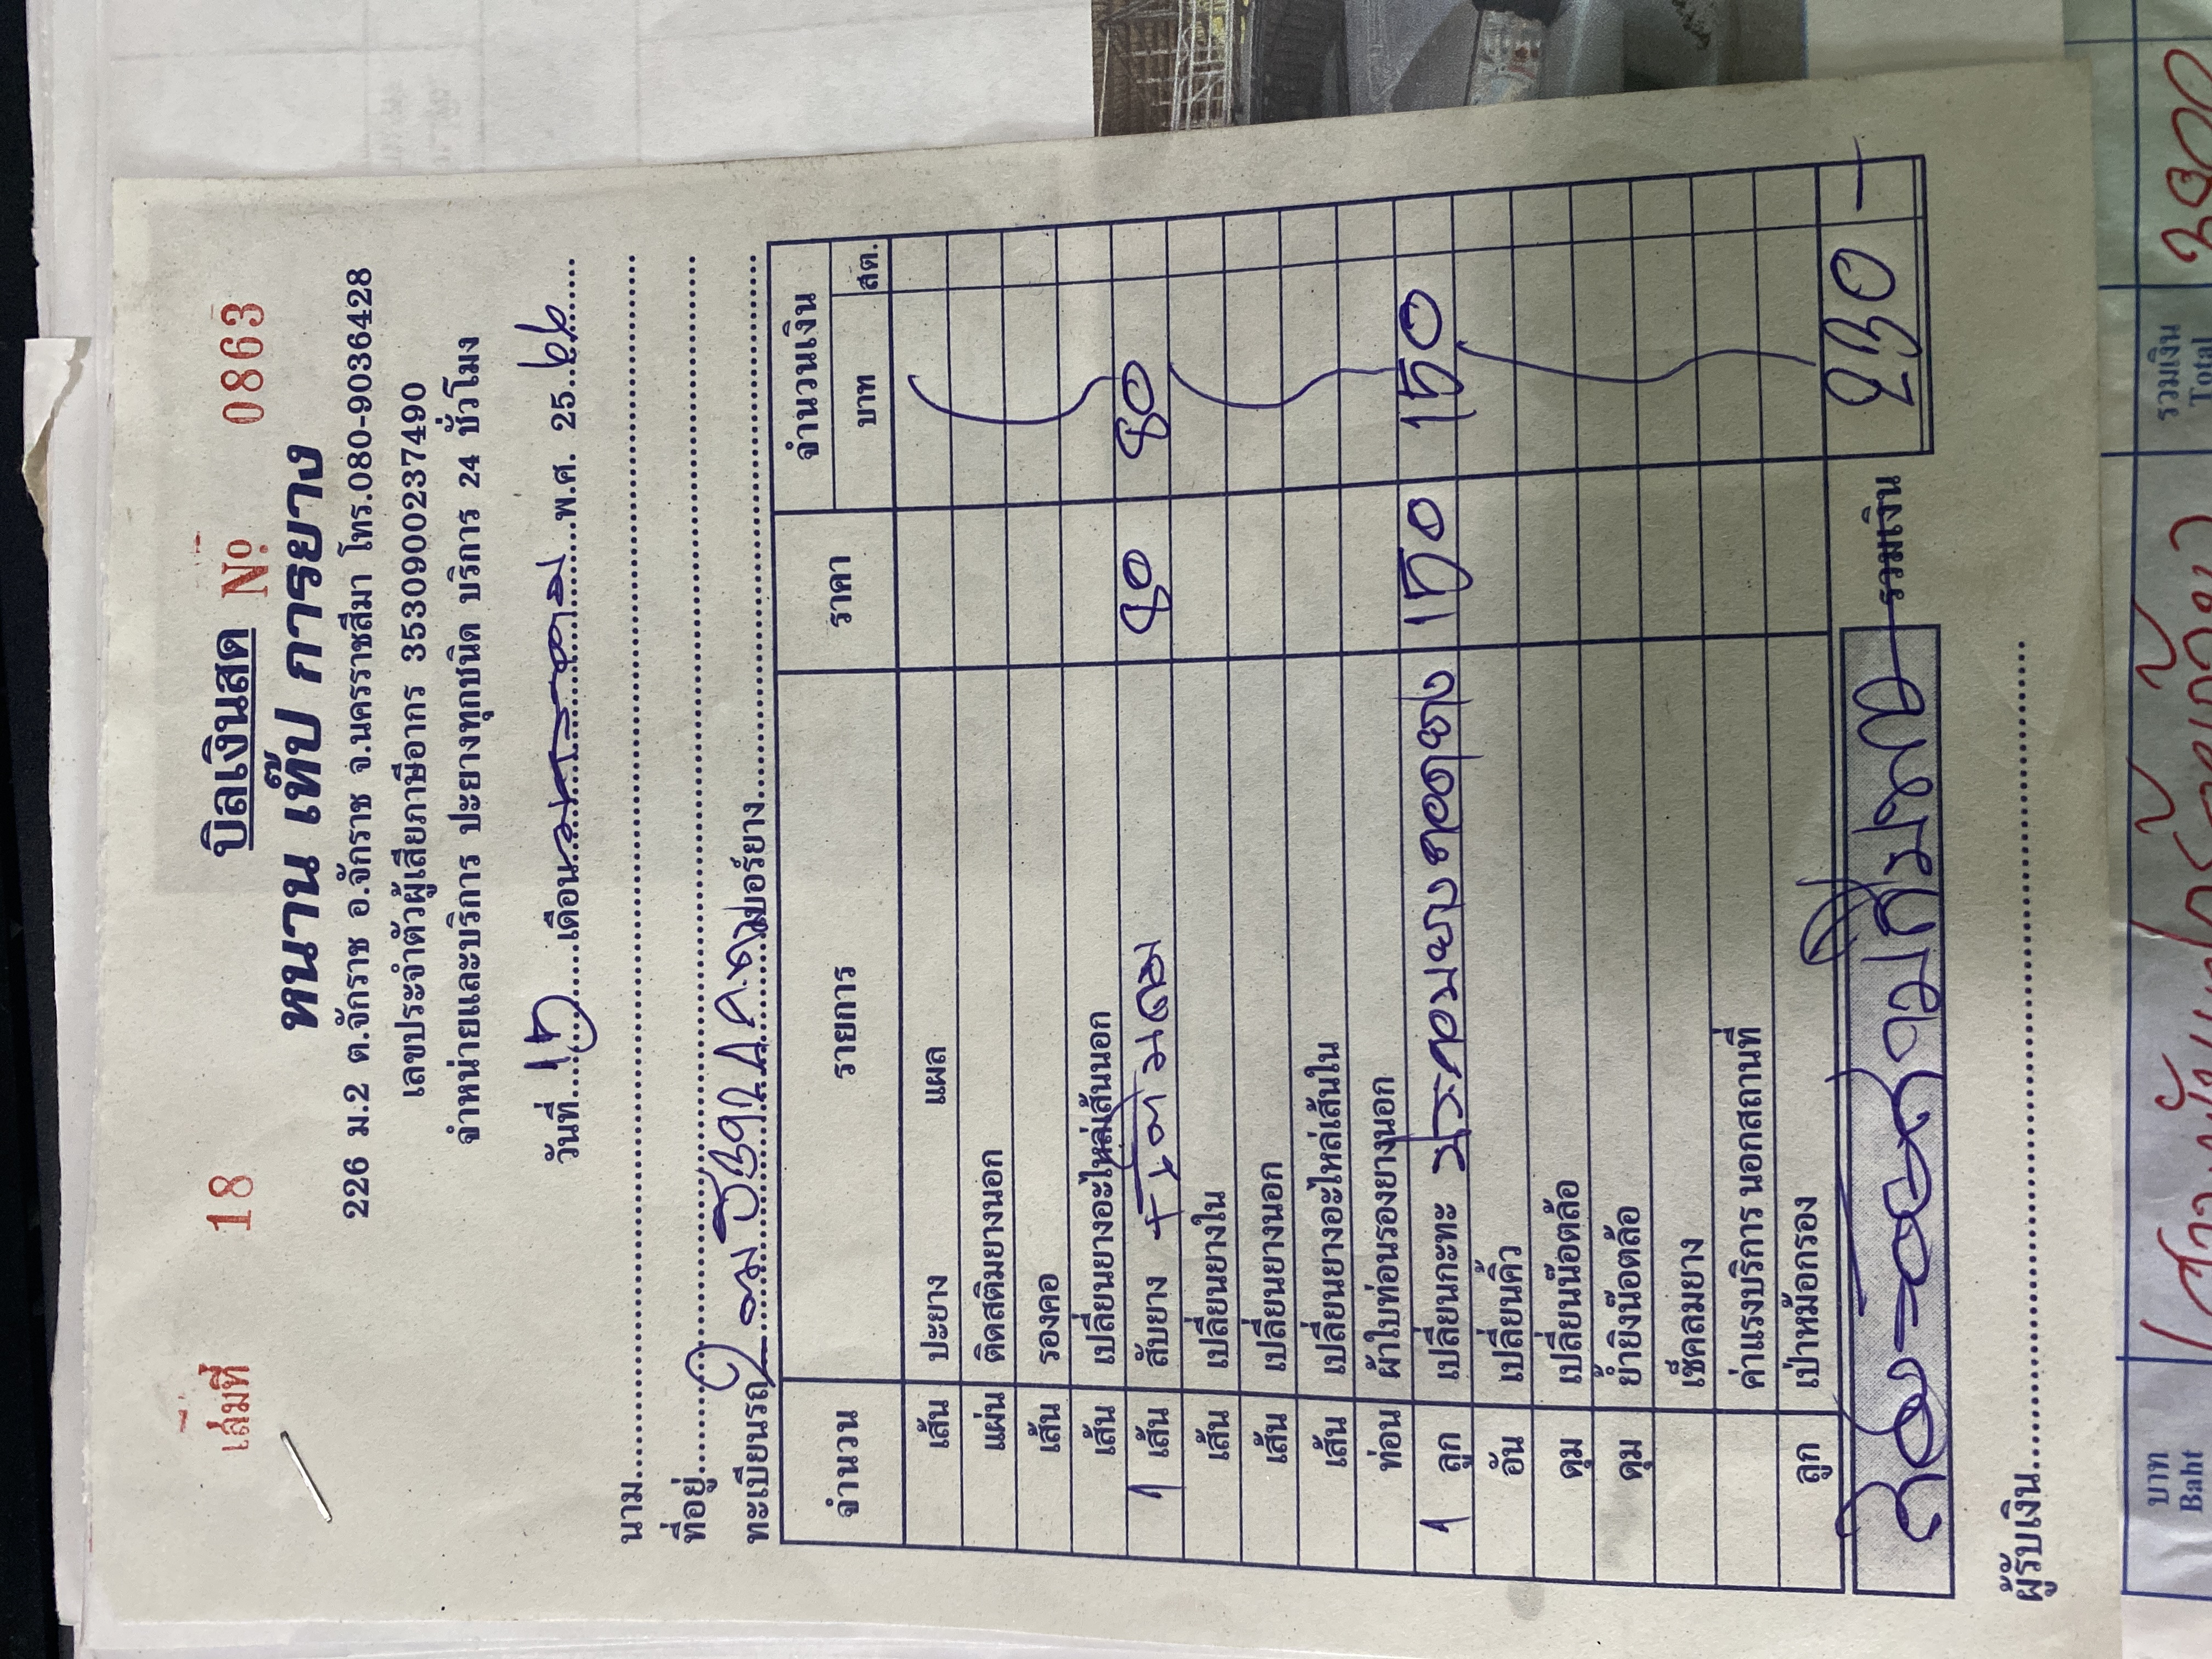 เล่มที่ 18 บิลเงินสด No 0863
หนาน เท๊ป การยาง
226 ม.2 ต.จักราช อ.จักราช จ.นครราชสีมา โทร.080-9036428
เลขประจำตัวผู้เสียภาษีอากร 3530900237490
จำหน่ายและบริการ ปะยางทุกชนิด บริการ 24 ชั่วโมง
วันที่ 15 เดือน มกราคม พ.ศ. 25 66
นาม
ที่อยู่
ทะเบียนรถ เบอร์ยาง
จำนวน รายการ ราคา จำนวนเงิน
บาท สต.
เส้น ปะยาง แผล
แผ่น ติดสติมยางนอก
เส้น รองคอ
เส้น เปลี่ยนยางอะไหล่เส้นนอก
1 เส้น สับยาง 80 80
เส้น เปลี่ยนยางใน
เส้น เปลี่ยนยางนอก
เส้น เปลี่ยนยางอะไหล่เส้นใน
ท่อน ผ้าใบท่อนรองยางนอก
1 ลูก เปลี่ยนกะทะ 150 150
อัน เปลี่ยนคิ้ว
ดุม เปลี่ยนน๊อตล้อ
ดุม ย้ำยิงน๊อตล้อ
เช็คลมยาง
ค่าแรงบริการ นอกสถานที่
ลูก เป่าหม้อกรอง
สองร้อยสามสิบบาท รวมเงิน 230 -
ผู้รับเงิน
บาท
Baht
รวมเงิน
Total